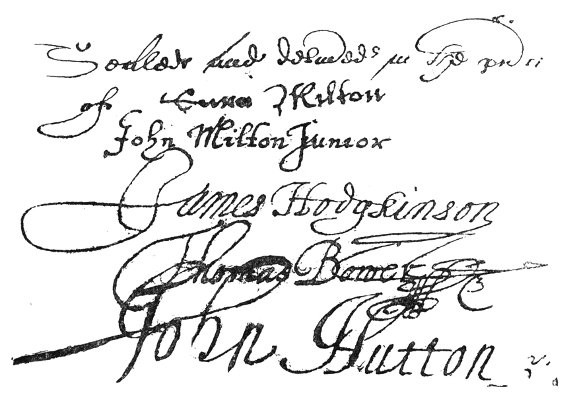 Sealed and delivered in the
of Anna Milton
John Milton Junior
James Hodgkinson
Thomas Bower
John Hutton